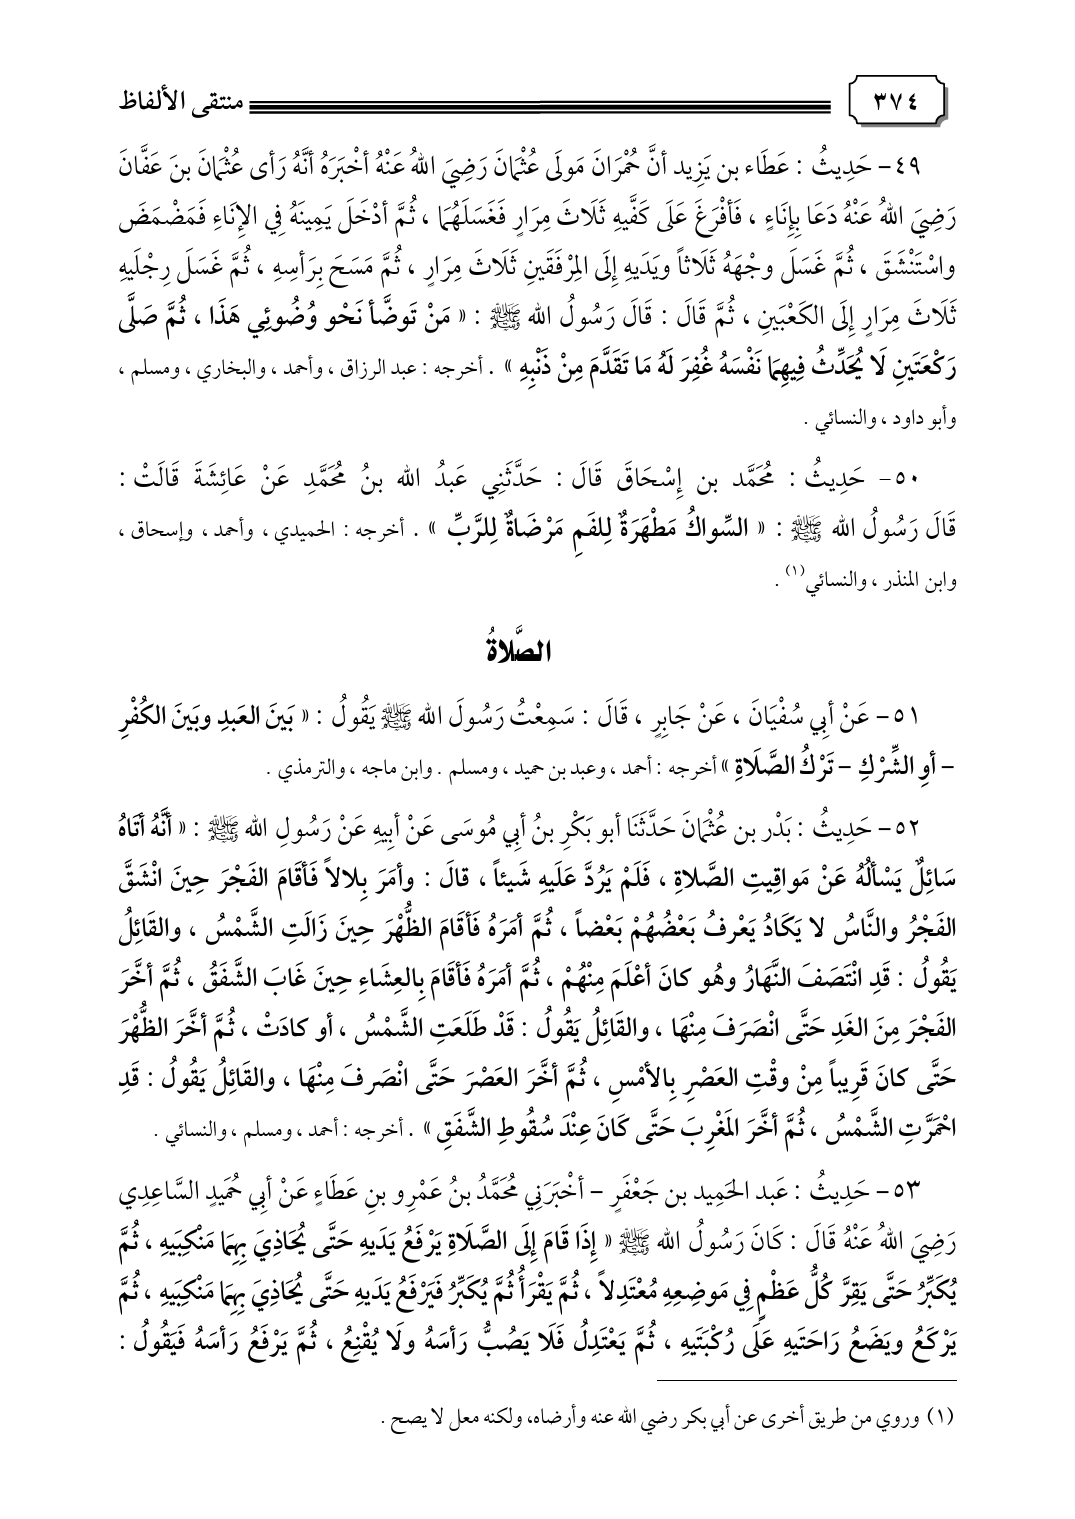 ٣٧٤ منتقى الألفاظ
٤٩- حَدِيثُ : عَطَاء بن يَزِيد أنَّ حُمْرَانَ مَولَى عُثْمَانَ رَضِيَ اللهُ عَنْهُ أخْبَرَهُ أنَّهُ رَأى عُثْمَانَ بنَ عَفَّانَ
رَضِيَ اللهُ عَنْهُ دَعَا بِإِنَاءٍ ، فَأفْرَغَ عَلَى كَفَّيهِ ثَلَاثَ مِرَارٍ فَغَسَلَهُمَا ، ثُمَّ أدْخَلَ يَمِينَهُ فِي الإِنَاءِ فَمَضْمَضَ
واسْتَنْشَقَ ، ثُمَّ غَسَلَ وجْهَهُ ثَلَاثاً ويَدَيهِ إِلَى المِرْفَقَينِ ثَلَاثَ مِرَارٍ ، ثُمَّ مَسَحَ بِرَأسِهِ ، ثُمَّ غَسَلَ رِجْلَيهِ
ثَلَاثَ مِرَارٍ إِلَى الكَعْبَينِ ، ثُمَّ قَالَ : قَالَ رَسُولُ الله ﷺ : « مَنْ تَوضَّأ نَحْو وُضُوئِي هَذَا ، ثُمَّ صَلَّى
رَكْعَتَينِ لَا يُحَدِّثُ فِيهِمَا نَفْسَهُ غُفِرَ لَهُ مَا تَقَدَّمَ مِنْ ذَنْبِهِ » . أخرجه : عبد الرزاق ، وأحمد ، والبخاري ، ومسلم ،
وأبو داود ، والنسائي .
٥٠- حَدِيثُ : مُحَمَّد بن إِسْحَاقَ قَالَ : حَدَّثَنِي عَبدُ الله بنُ مُحَمَّدِ عَنْ عَائِشَةَ قَالَتْ :
قَالَ رَسُولُ الله ﷺ : « السِّواكُ مَطْهَرَةٌ لِلفَمِ مَرْضَاةٌ لِلرَّبِّ » . أخرجه : الحميدي ، وأحمد ، وإسحاق ،
وابن المنذر ، والنسائي(١) .
الصَّلاةُ
٥١- عَنْ أبي سُفْيَانَ ، عَنْ جَابِرٍ ، قَالَ : سَمِعْتُ رَسُولَ الله ﷺ يَقُولُ : « بَينَ العَبدِ وبَينَ الكُفْرِ
– أوِ الشِّرْكِ – تَرْكُ الصَّلَاةِ » أخرجه : أحمد ، وعبد بن حميد ، ومسلم . وابن ماجه ، والترمذي .
٥٢- حَدِيثُ : بَدْر بن عُثْمَانَ حَدَّثَنَا أبو بَكْرِ بنُ أبي مُوسَى عَنْ أبيهِ عَنْ رَسُولِ الله ﷺ : « أنَّهُ أتَاهُ
سَائِلٌ يَسْألُهُ عَنْ مَواقِيتِ الصَّلاةِ ، فَلَمْ يَرُدَّ عَلَيهِ شَيئاً ، قالَ : وأمَرَ بِلالاً فَأقَامَ الفَجْرَ حِينَ انْشَقَّ
الفَجْرُ والنَّاسُ لا يَكَادُ يَعْرِفُ بَعْضُهُمْ بَعْضاً ، ثُمَّ أمَرَهُ فَأقَامَ الظُّهْرَ حِينَ زَالَتِ الشَّمْسُ ، والقَائِلُ
يَقُولُ : قَدِ انْتَصَفَ النَّهَارُ وهُو كانَ أعْلَمَ مِنْهُمْ ، ثُمَّ أمَرَهُ فَأقَامَ بِالعِشَاءِ حِينَ غَابَ الشَّفَقُ ، ثُمَّ أخَّرَ
الفَجْرَ مِنَ الغَدِ حَتَّى انْصَرَفَ مِنْهَا ، والقَائِلُ يَقُولُ : قَدْ طَلَعَتِ الشَّمْسُ ، أو كادَتْ ، ثُمَّ أخَّرَ الظُّهْرَ
حَتَّى كانَ قَرِيباً مِنْ وقْتِ العَصْرِ بِالأمْسِ ، ثُمَّ أخَّرَ العَصْرَ حَتَّى انْصَرفَ مِنْهَا ، والقَائِلُ يَقُولُ : قَدِ
احْمَرَّتِ الشَّمْسُ ، ثُمَّ أخَّرَ المَغْرِبَ حَتَّى كَانَ عِنْدَ سُقُوطِ الشَّفَقِ » . أخرجه : أحمد ، ومسلم ، والنسائي .
٥٣- حَدِيثُ : عَبد الحَمِيد بن جَعْفَرٍ – أخْبَرَنِي مُحَمَّدُ بنُ عَمْرِو بنِ عَطَاءٍ عَنْ أبي حُمَيدٍ السَّاعِدِي
رَضِيَ اللهُ عَنْهُ قَالَ : كَانَ رَسُولُ الله ﷺ « إِذَا قَامَ إِلَى الصَّلَاةِ يَرْفَعُ يَدَيهِ حَتَّى يُحَاذِيَ بِهِمَا مَنْكِبَيهِ ، ثُمَّ
يُكَبِّرُ حَتَّى يَقِرَّ كُلُّ عَظْمٍ فِي مَوضِعِهِ مُعْتَدِلاً ، ثُمَّ يَقْرَأُ ثُمَّ يُكَبِّرُ فَيَرْفَعُ يَدَيهِ حَتَّى يُحَاذِيَ بِهِمَا مَنْكِبَيهِ ، ثُمَّ
يَرْكَعُ ويَضَعُ رَاحَتَيهِ عَلَى رُكْبَتَيهِ ، ثُمَّ يَعْتَدِلُ فَلَا يَصُبُّ رَأسَهُ ولَا يُقْنِعُ ، ثُمَّ يَرْفَعُ رَأسَهُ فَيَقُولُ :
(١) وروي من طريق أخرى عن أبي بكر رضي الله عنه وأرضاه، ولكنه معل لا يصح .